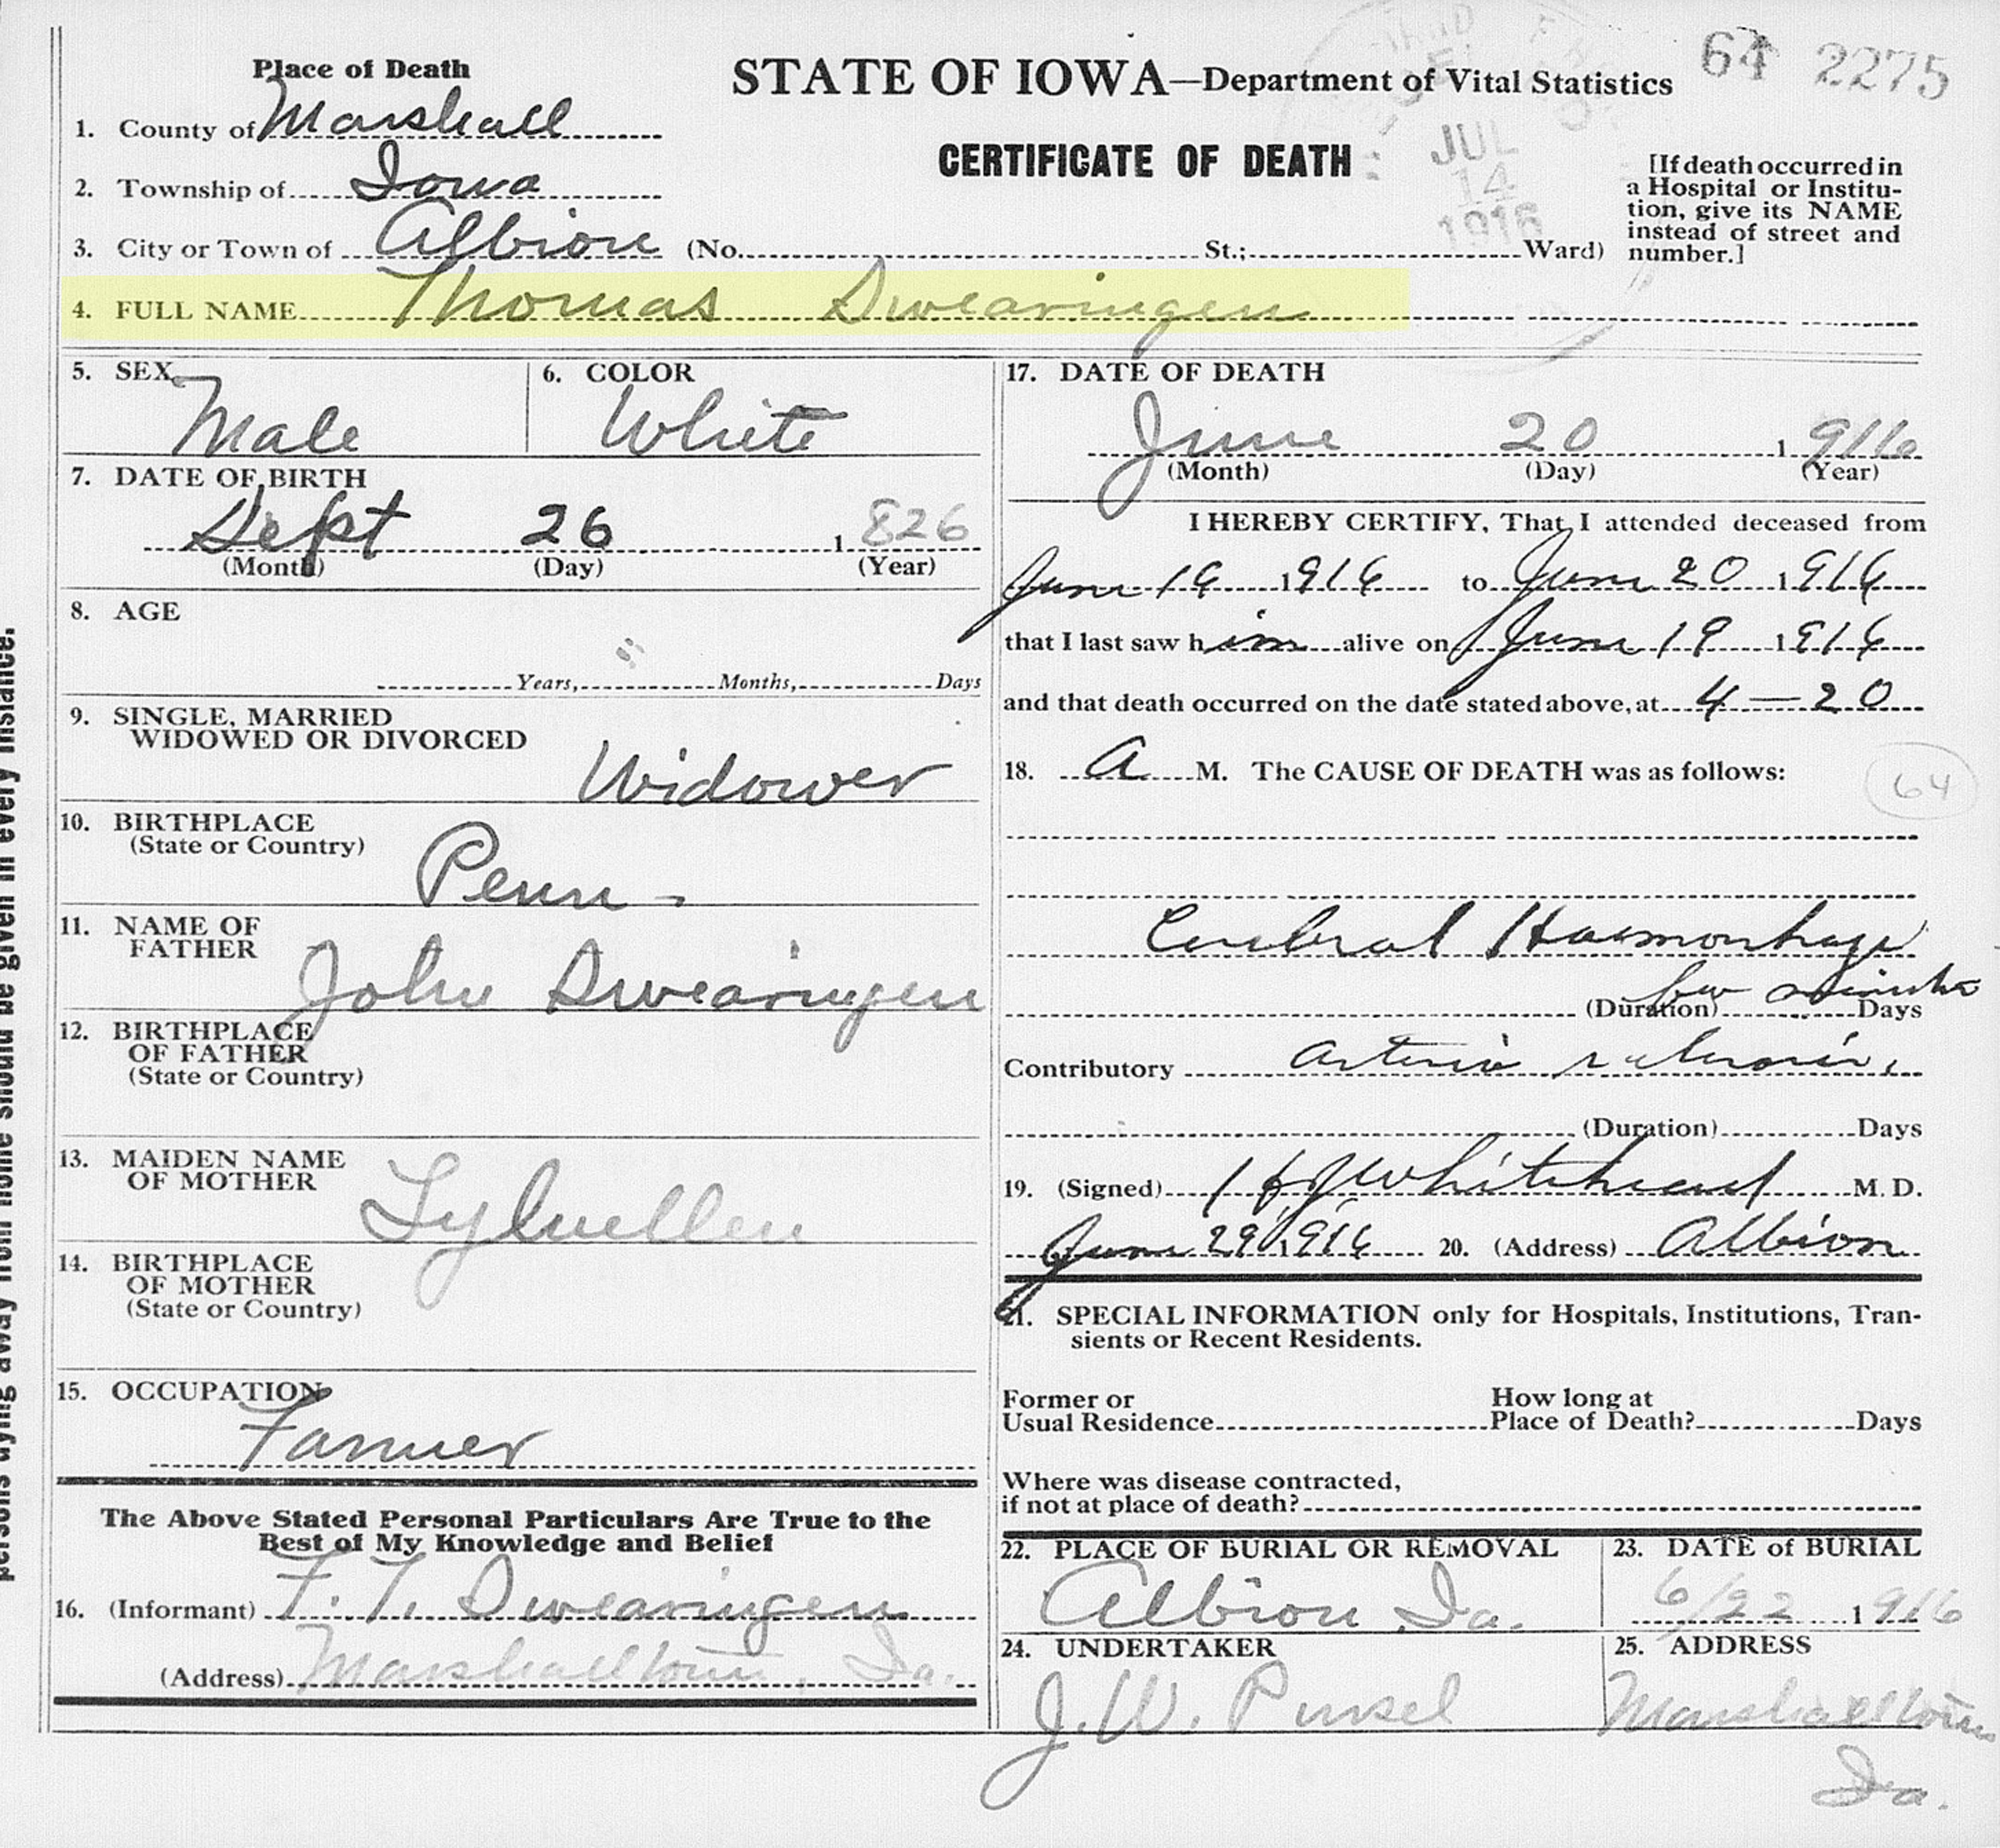 64 2275
Place of Death
STATE OF IOWA—Department of Vital Statistics
CERTIFICATE OF DEATH
JUL
14
1916
1. County of Marshall
2. Township of Iowa
3. City or Town of Albion (No. St.; Ward)
[If death occurred in
a Hospital or Institu-
tion, give its NAME
instead of street and
number.]
4. FULL NAME Thomas Swearingen
5. SEX Male
6. COLOR White
7. DATE OF BIRTH
Sept 26 1826
(Month) (Day) (Year)
8. AGE
Years, Months, Days
9. SINGLE, MARRIED
WIDOWED OR DIVORCED
Widower
10. BIRTHPLACE
(State or Country)
Penn.
11. NAME OF
FATHER
John Swearingen
12. BIRTHPLACE
OF FATHER
(State or Country)
13. MAIDEN NAME
OF MOTHER
14. BIRTHPLACE
OF MOTHER
(State or Country)
15. OCCUPATION
Farmer
The Above Stated Personal Particulars Are True to the
Best of My Knowledge and Belief
16. (Informant) F. T. Swearingen
(Address) Marshalltown, Ia.
17. DATE OF DEATH
June 20 1916
(Month) (Day) (Year)
I HEREBY CERTIFY, That I attended deceased from
June 1916 to June 20 1916
that I last saw him alive on June 19 1916
and that death occurred on the date stated above, at 4—20
18. A M. The CAUSE OF DEATH was as follows:
64
Cerebral Haemorrhage
few minutes
(Duration) Days
Contributory Arterio sclerosis
(Duration) Days
19. (Signed) Whitehead M. D.
June 29 1916 20. (Address) Albion
21. SPECIAL INFORMATION only for Hospitals, Institutions, Tran-
sients or Recent Residents.
Former or
Usual Residence
How long at
Place of Death? Days
Where was disease contracted,
if not at place of death?
22. PLACE OF BURIAL OR REMOVAL
Albion Ia.
23. DATE of BURIAL
6/22 1916
24. UNDERTAKER
J. W. Pursel
25. ADDRESS
Marshalltown
Ia.
persons dying away from home should be given in every instance.